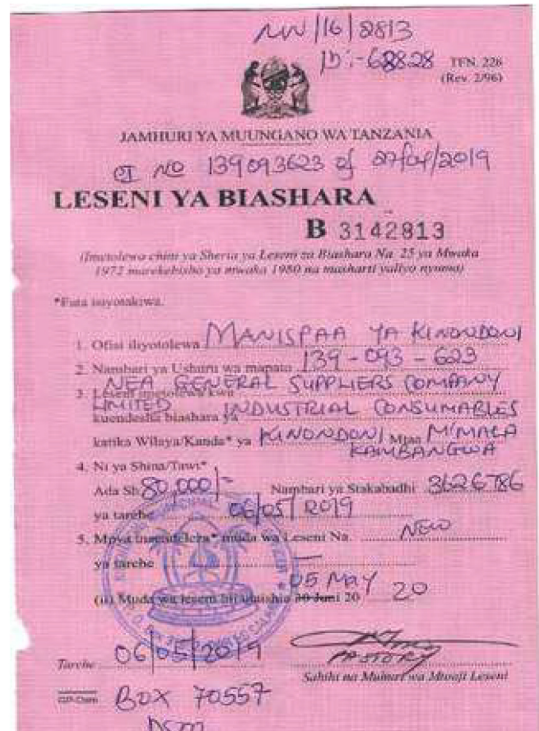 NW/16/2813
ID:-68828
TFN. 226
(Rev. 2/96)
JAMHURI YA MUUNGANO WA TANZANIA
NO 139093623 of 27/04/2019
LESENI YA BIASHARA
B 3142813
(Imetolewa chini ya Sheria ya Leseni za Biashara Na. 25 ya Mwaka
1972 marekebisho ya mwaka 1980 na masharti yaliyo nyuma)
*Futa isiyotakiwa.
1. Ofisi iliyotolewa MANISPAA YA KINONDONI
2. Nambari ya Ushuru wa mapato 139-093-623
3. Leseni imetolewa kwa NEA GENERAL SUPPLIERS COMPANY
LIMITED
kuendesha biashara ya INDUSTRIAL CONSUMABLES
katika Wilaya/Kanda* ya KINONDONI Mtaa M'MALA
KAMBANGWA
4. Ni ya Shina/Tawi*
Ada Sh 80,000/= Nambari ya Stakabadhi 3626786
ya tarehe 06/05/2019
5. Mpya inaendeleza* muda wa Leseni Na. NEW
ya tarehe —
(ii) Muda wa leseni hii utaishia 30 Juni 20 05 MAY 20
Tarehe 06/05/2019
Sahihi na Muhuri wa Mtoaji Leseni
GP-Dsm
BOX 70557
DSM